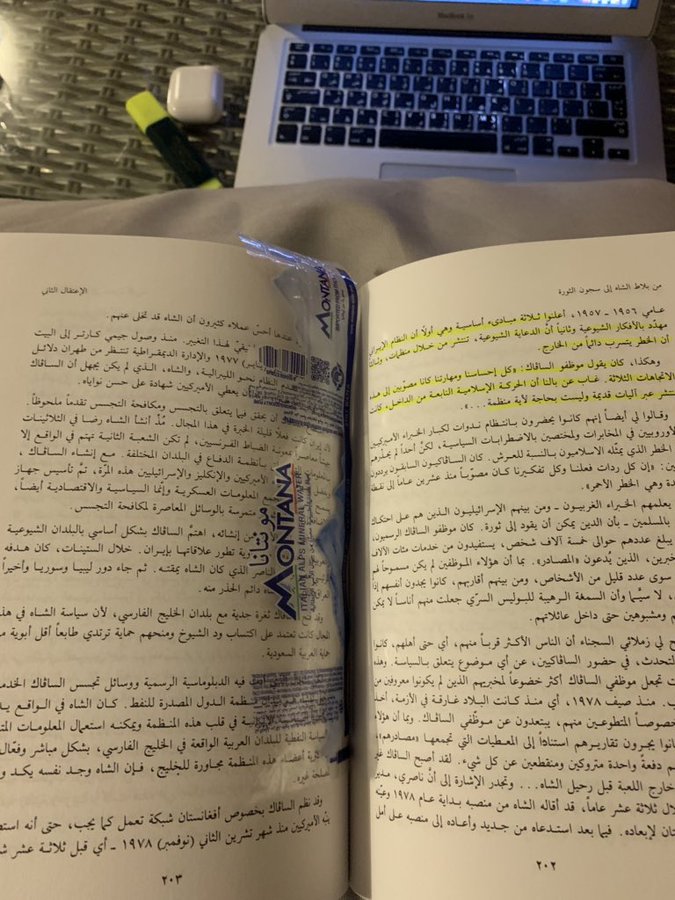 MacBook Air
من بلاط الشاه إلى سجون الثورة
عامي ١٩٥٦ - ١٩٥٧، أعلنوا ثلاثة مبادىء أساسية وهي أولاً أن النظام الإيراني
مهدّد بالأفكار الشيوعية وثانياً أنّ الدعاية الشيوعية، تنتشر من خلال منظمات، وثالثاً
أن الخطر يتسرب دائماً من الخارج.
وهكذا، كان يقول موظفو الساڤاك: «وكل إحساسنا ومهارتنا كانا مصوّبين إلى هذه
الاتجاهات الثلاثة. غاب عن بالنا أن الحركة الإسلامية النابعة من الداخل، كانت
تنتشر عبر آليات قديمة وليست بحاجة لأية منظمة...».
وقالوا لي أيضاً إنهم كانوا يحضرون بانتظام ندوات لكبار الخبراء الأميركيين
والأوروبيين في المخابرات والمختصين بالاضطرابات السياسية، لكنّ أحداً لم يحذّرهم
الخطر الذي يمثّله الاسلاميون بالنسبة للعرش. كان الساڤاكيون السابقون يرددون
«إن كل ردات فعلنا وكل تفكيرنا كان مصوّباً منذ عشرين عاماً إلى نقطة
وهي الخطر الأحمر».
يعلمهم الخبراء الغربيون - ومن بينهم الإسرائيليون الذين هم على احتكاك
بالمسلمين - بأن الدين يمكن أن يقود إلى ثورة. كان موظفو الساڤاك الرسميون،
يبلغ عددهم حوالى خمسة آلاف شخص، يستفيدون من خدمات مئات الآلاف
يُدعون «المصادر». بما أن هؤلاء الموظفين لم يكن مسموحاً لهم
سوى عدد قليل من الأشخاص، ومن بينهم أقاربهم، كانوا يجدون أنفسهم إذاً
لا سيّما وأن السمعة الرهيبة للبوليس السرّي جعلت منهم أناساً لا يمكن
ومشبوهين حتى داخل عائلاتهم.
لي زملائي السجناء أن الناس الأكثر قرباً منهم، أي حتى أهلهم، كانوا
التحدث، في حضور الساڤاكيين، عن أي موضوع يتعلق بالسياسة. وهذه
تجعل موظفي الساڤاك أكثر خضوعاً لمخبريهم الذين لم يكونوا معروفين من
منذ صيف ١٩٧٨، أي منذ كانت البلاد غارقة في الأزمة، أخذ
خصوصاً المتطوعين منهم، يبتعدون عن موظّفي الساڤاك. وبما أن هؤلاء
كانوا يحررون تقاريرهم استناداً إلى المعطيات التي تجمعها «مصادرهم»،
دفعة واحدة متروكين ومنقطعين عن كل شيء. لقد أصبح الساڤاك غير
خارج اللعبة قبل رحيل الشاه... وتجدر الإشارة إلى أنّ ناصري، مدير
ثلاثة عشر عاماً، قد أقاله الشاه من منصبه بداية عام ١٩٧٨ وعيّنه
لإبعاده. فيما بعد استدعاه من جديد وأعاده إلى منصبه على أمل
٢٠٢
الإعتقال الثاني
عندها أحسّ عملاء كثيرون أن الشاه قد تخلى عنهم.
هذا التغيير. منذ وصول جيمي كارتر إلى البيت
١٩٧٧ والإدارة الديمقراطية تنتظر من طهران دلائل
النظام نحو الليبرالية، والشاه، الذي لم يكن يجهل أن الساڤاك
أن يعطي الأميركيين شهادة على حسن نواياه.
أن يحقق فيما يتعلق بالتجسس ومكافحة التجسس تقدماً ملحوظاً.
كانت فعلاً قليلة الخبرة في هذا المجال. مُذ أنشأ الشاه رضا في الثلاثينات
بمعونة الضباط الفرنسيين، لم تكن الشعبة الثانية تهتم في الواقع إلا
بأنظمة الدفاع في البلدان المختلفة. مع إنشاء الساڤاك،
الأميركيين والإنكليز والإسرائيليين هذه المرّة، تمّ تأسيس جهاز
المعلومات العسكرية وإنما السياسية والاقتصادية أيضاً،
متمرسة بالوسائل المعاصرة لمكافحة التجسس.
من إنشائه، اهتمّ الساڤاك بشكل أساسي بالبلدان الشيوعية
وية تطور علاقاتها بإيران. خلال الستينات، كان هدفه
الناصر الذي كان الشاه يمقته. ثم جاء دور ليبيا وسوريا وأخيراً
دائم الحذر منه.
ثغرة جدية مع بلدان الخليج الفارسي، لأن سياسة الشاه في هذا
المجال كانت تعتمد على اكتساب ود الشيوخ ومنحهم حماية ترتدي طابعاً أقل أبوية من
حماية العربية السعودية.
فيه الدبلوماسية الرسمية ووسائل تجسس الساڤاك
منظمة الدول المصدرة للنفط. كان الشاه في الواقع
في قلب هذه المنظمة ويمكنه استعمال المعلومات
سياسة النفطية للبلدان العربية الواقعة في الخليج الفارسي، بشكل مباشر وفعّال
أعضاء هذه المنظمة مجاورة للخليج، فإن الشاه وجد نفسه
لمصلحة غيره.
وقد نظم الساڤاك بخصوص أفغانستان شبكة تعمل كما يجب، حتى أنه
ينبّه الأميركيين منذ شهر تشرين الثاني (نوفمبر) ١٩٧٨ - أي قبل ثلاثة عشر
٢٠٣
MONTANA
مونتانا
MONTANA
ITALIAN ALPS MINERAL WATER